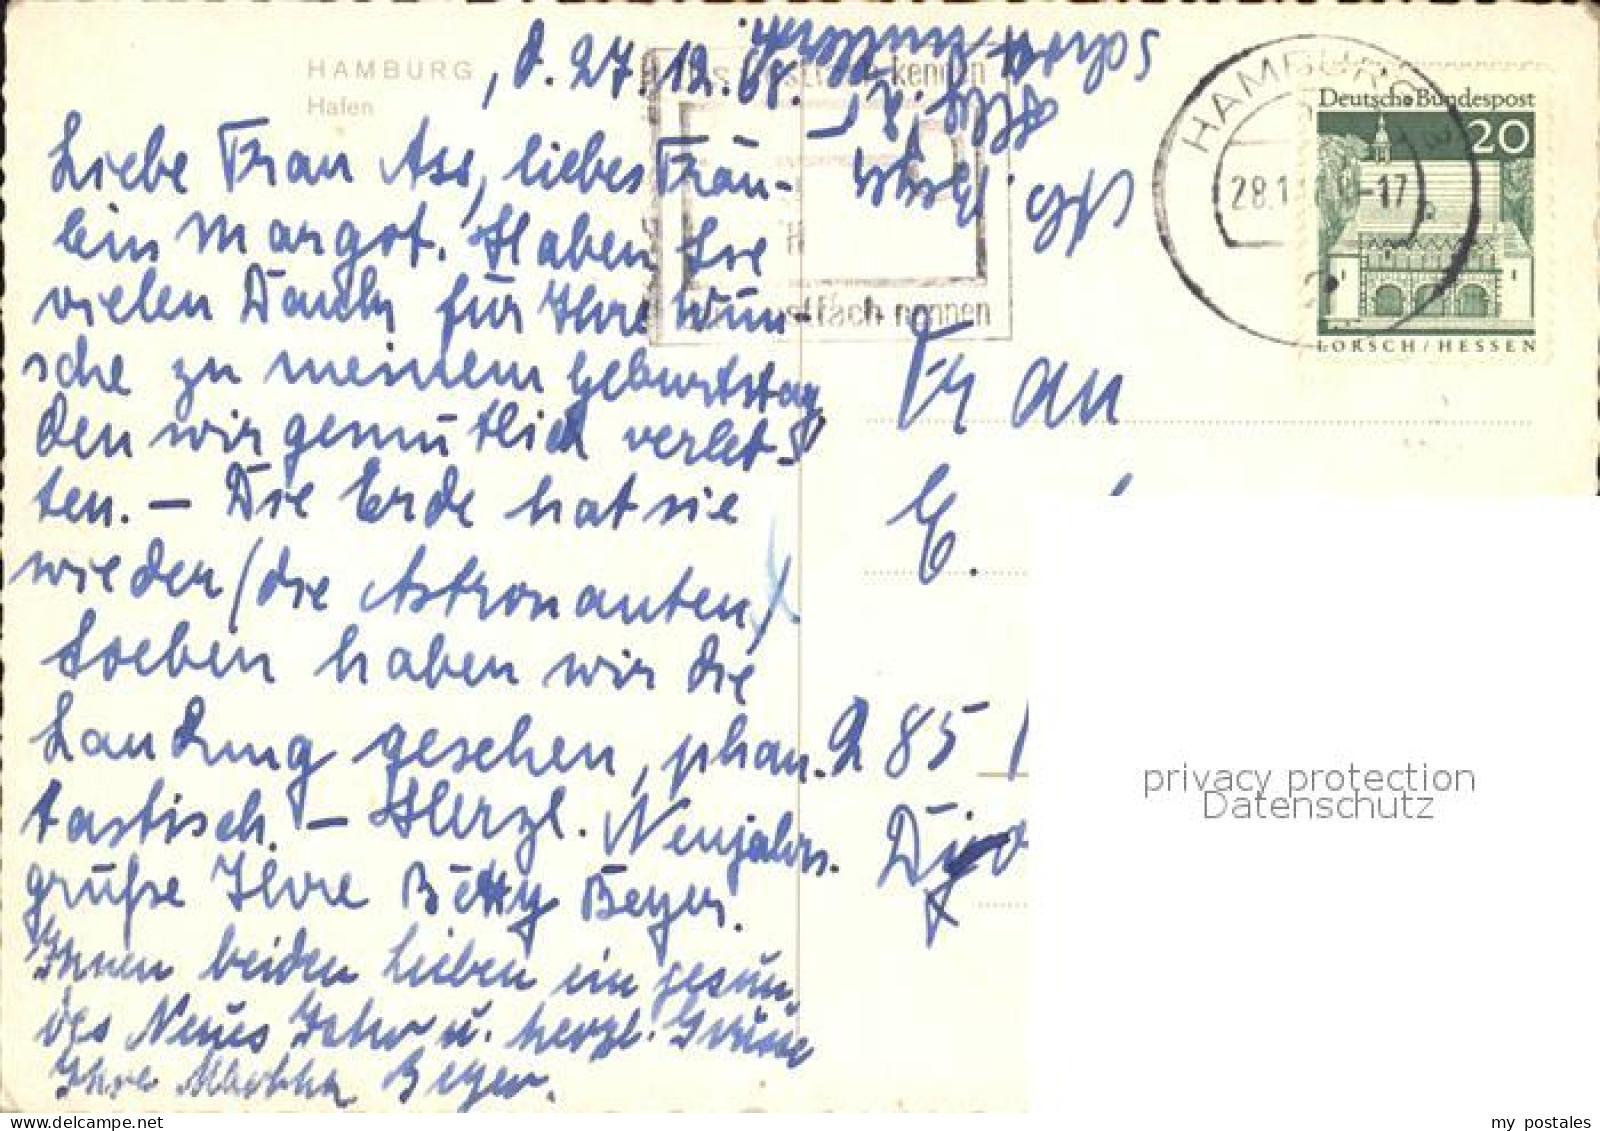 HAMBURG
Hafen
, d. 27.12.68.
Liebe Frau Ass, liebes Fräu-
lein Margot. Haben Sie
vielen Dank für Ihre Wün-
sche zu meinem Geburtstag
den wir gemütlich verleb-
ten. — Die Erde hat sie
wieder (die Astronauten)
Soeben haben wir die
Landung gesehen, phan-
tastisch. — Herzl. Neujahrs-
grüße Ihre Betty Beyer.
Ihnen beiden Lieben ein gesun-
des Neues Jahr u. herzl. Grüsse
Ihre Beyer.
HAMBURG
28.1 -17
Postfach nennen
Deutsche Bundespost
20
LORSCH / HESSEN
Frau
E.
285
privacy protection
Datenschutz
my postales